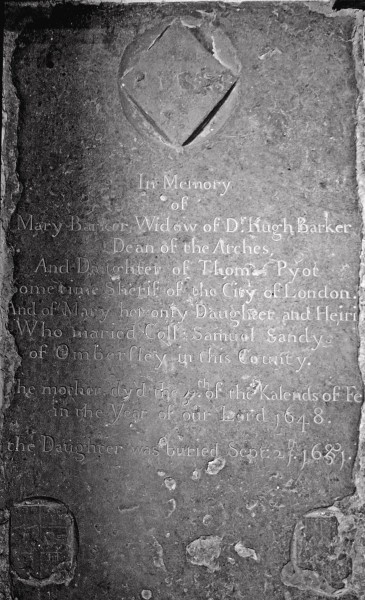 In Memory
of
Mary Barker, Widow of Dr. Hugh Barker
Dean of the Arches,
And Daughter of Thomas Pyot
Sometime Sherif of the City of London.
And of Mary her only Daughter and Heir
Who maried Coll: Samuel Sandys
of Ombersley in this County.
The mother dyd the of the Kalends of Fe
in the Year of our Lord 1648.
the Daughter was buried Sept: